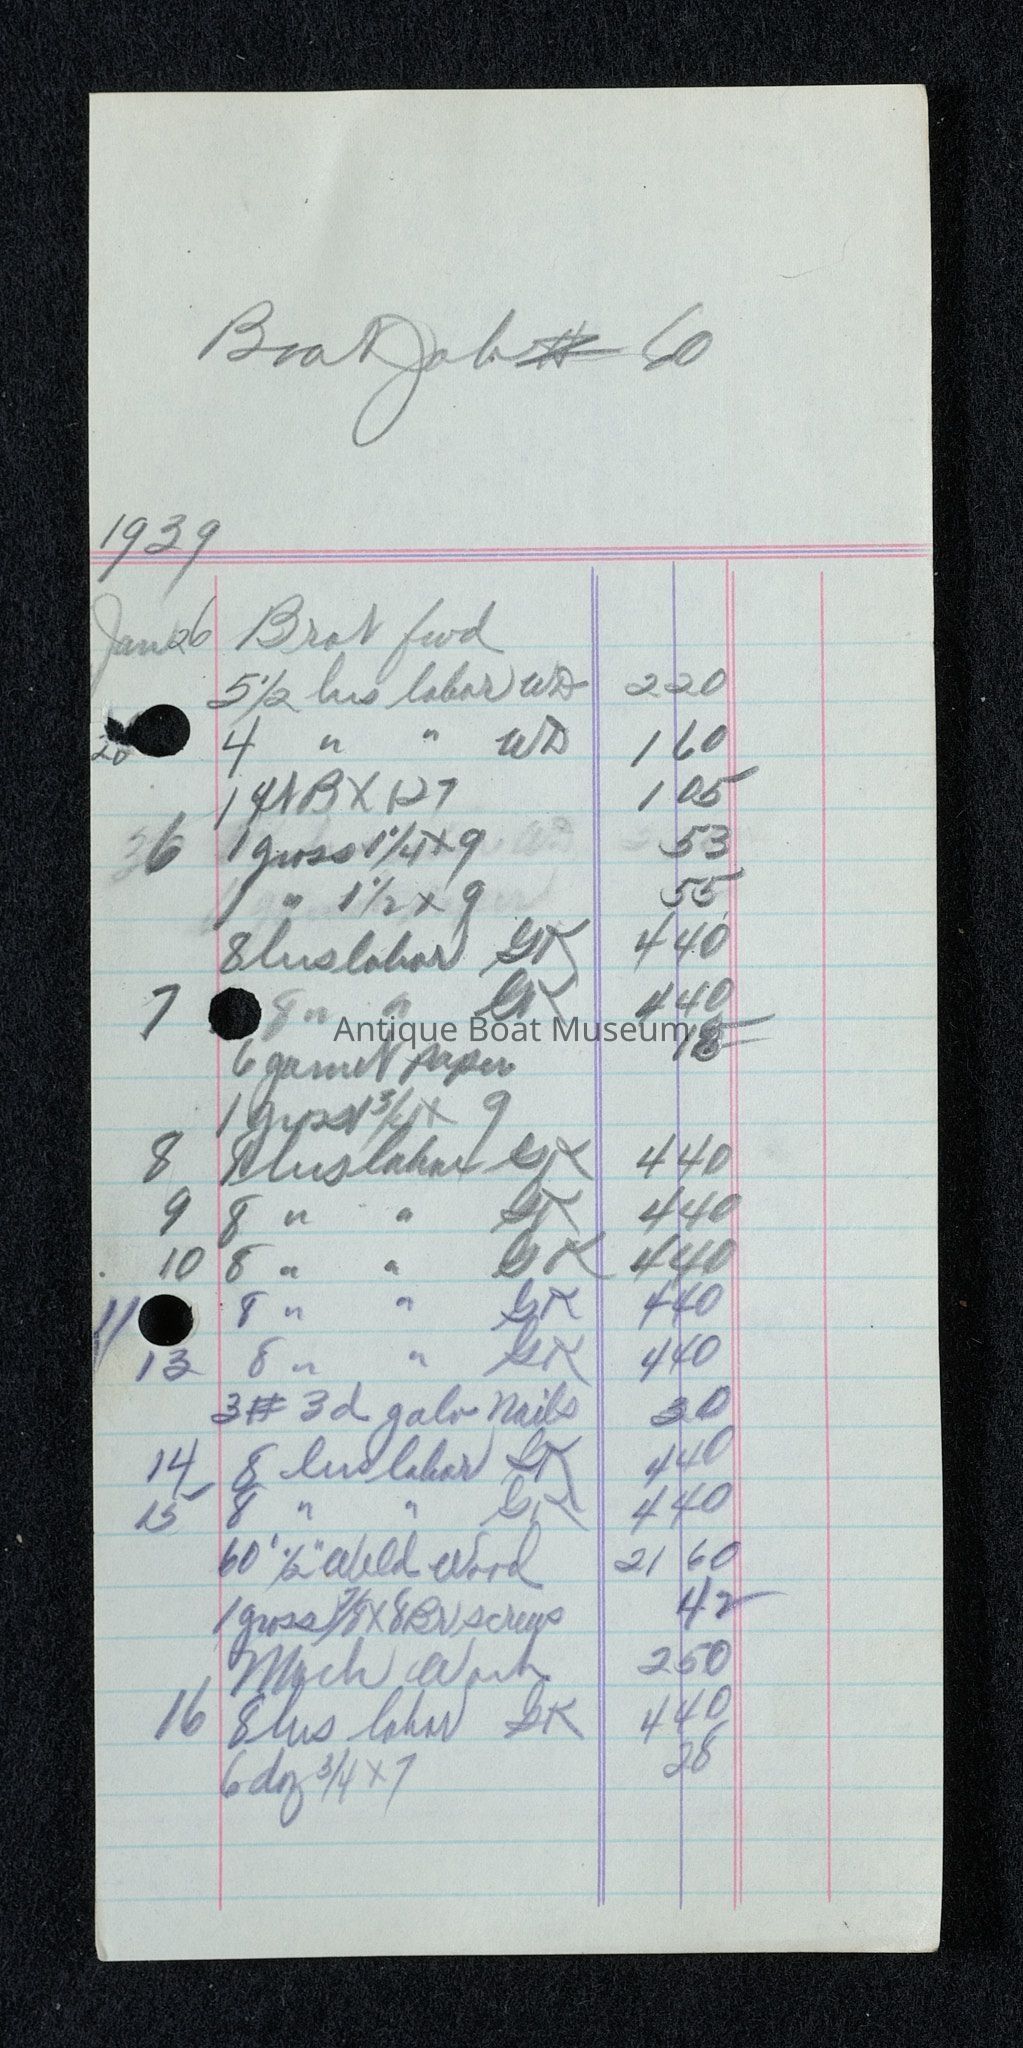 Boat Job # 60
1939
Jan 26 Brot fwd
5 1/2 hrs labor WD 220
4 " " WD 160
105
6 1 gross 1 1/4 x 9 53
1 " 1 1/2 x 9 55
8 hrs labor GK 440
7 8 " " GK 440
Antique Boat Museum
6 garnet paper 18
1 gross 1 3/4 x 9
8 8 hrs labor GK 440
9 8 " " GK 440
10 8 " " GK 440
11 8 " " GK 440
13 8 " " GK 440
3# 3d galv Nails 30
14 8 hrs labor GK 440
15 8 " " GK 440
60' 1/2" Weld Wood 21 60
1 gross 7/8 x 8 Br screws 42
Mach Work 250
16 8 hrs labor GK 440
6 doz 3/4 x 7 28